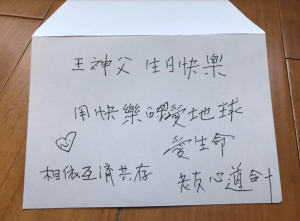 王神父 生日快樂
用快樂的愛愛地球
愛生命
相依互濟共存
老友心道合十